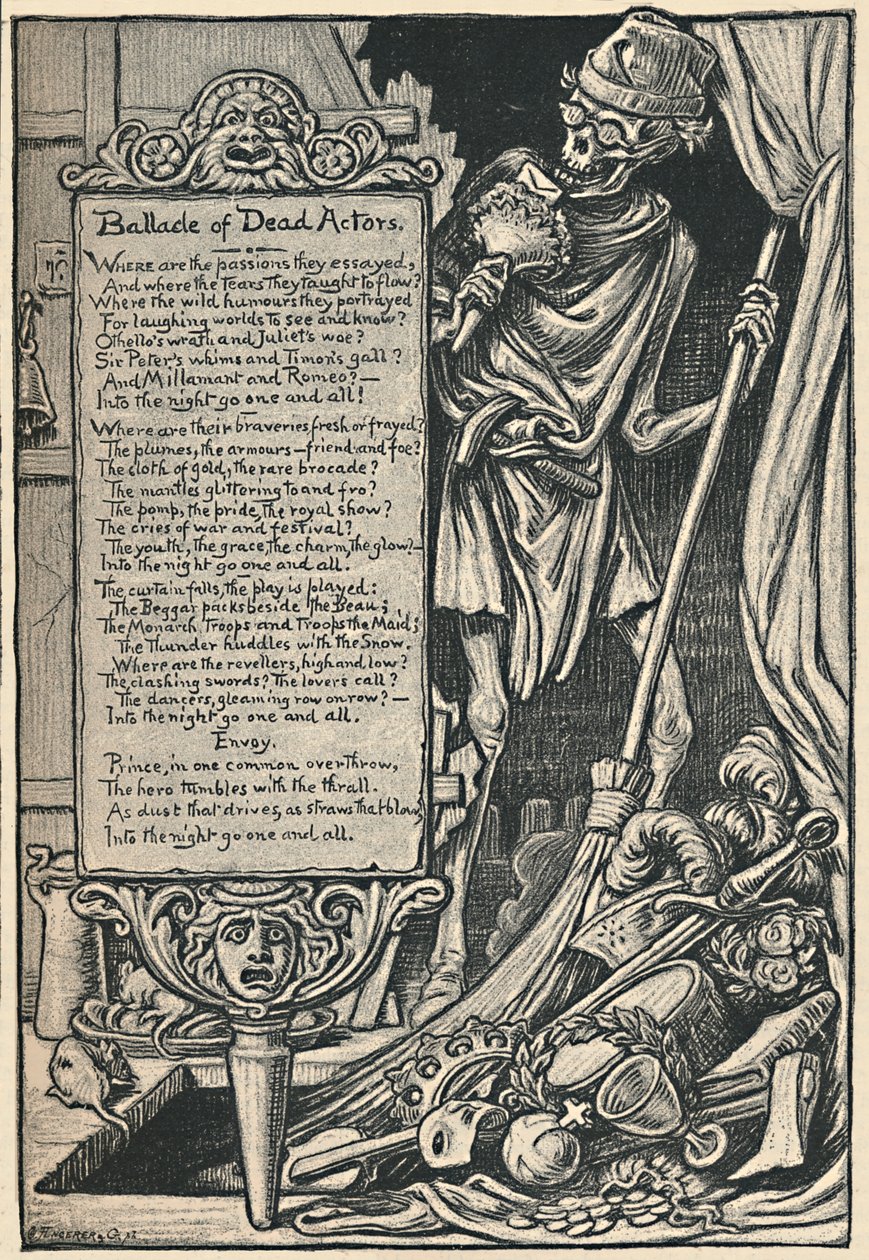 Ballade of Dead Actors.
WHERE are the passions they essayed,
And where the tears they taught to flow?
Where the wild humours they portrayed
For laughing worlds to see and know?
Othello's wrath and Juliet's woe?
Sir Peter's whims and Timon's gall?
And Millamant and Romeo?—
Into the night go one and all!
Where are their braveries, fresh or frayed?
The plumes, the armours—friend and foe?
The cloth of gold, the rare brocade?
The mantles glittering to and fro?
The pomp, the pride, the royal show?
The cries of war and festival?
The youth, the grace, the charm, the glow?—
Into the night go one and all.
The curtain falls, the play is played:
The Beggar packs beside the Beau;
The Monarch troops and troops the Maid;
The Thunder huddles with the Snow.
Where are the revellers, high and low?
The clashing swords? The lovers call?
The dancers, gleaming row on row?—
Into the night go one and all.
Envoy.
Prince, in one common overthrow,
The hero tumbles with the thrall.
As dust that drives, as straws that blow,
Into the night go one and all.